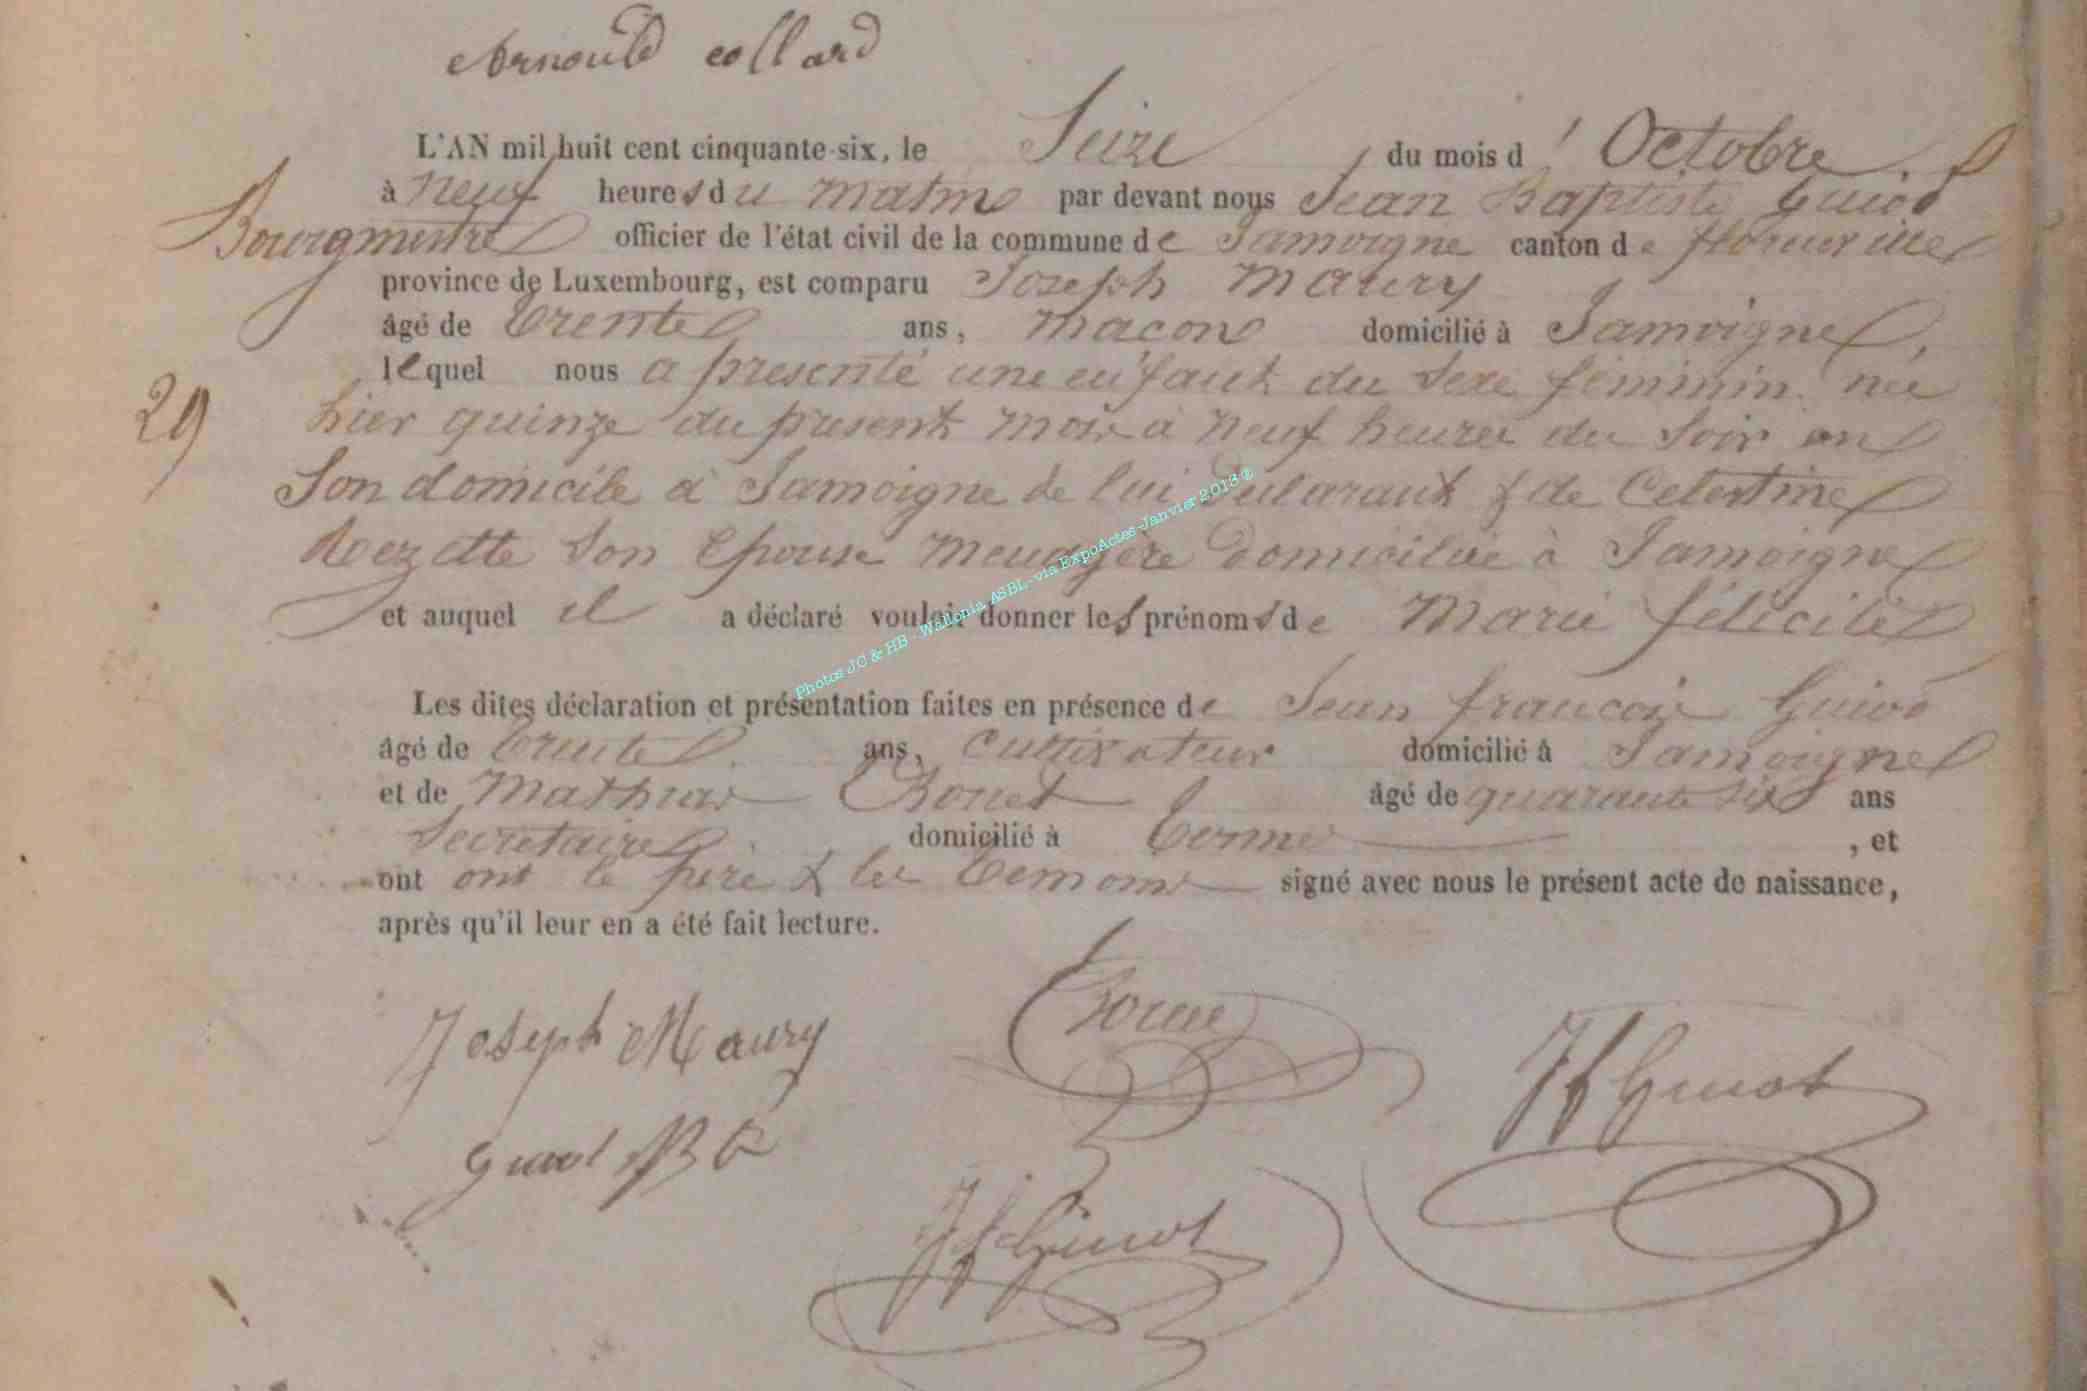 Arnould collard
L'AN mil huit cent cinquante-six, le Seize du mois d'Octobre
à neuf heures du matin par devant nous Jean Baptiste Guiot
Bourgmestre officier de l'état civil de la commune de Jamoigne canton de florenville
province de Luxembourg, est comparu Joseph Maury
âgé de trente ans, macon domicilié à Jamoigne,
lequel nous a presenté une enfant du sexe féminin née
29
hier quinze du present mois à neuf heures du soir en
Son domicile à Jamoigne de lui declarant & de Celestine
Rezette son epouse menagère domiciliée à Jamoigne
et auquel il a déclaré vouloir donner les prénoms de Marie félicité
Les dites déclaration et présentation faites en présence de Jean francois Guiot
âgé de trente ans, cultivateur domicilié à Jamoigne
et de Mathias âgé de quarante six ans
Secretaire domicilié à termes, et
ont ont le père & les temoins signé avec nous le présent acte de naissance,
après qu'il leur en a été fait lecture.
Joseph Maury
JfGuiot
Guiot JB
Jf Guiot
Photos JC & HB - Wallonia ASBL - via ExpoActes - Janvier 2013 ®